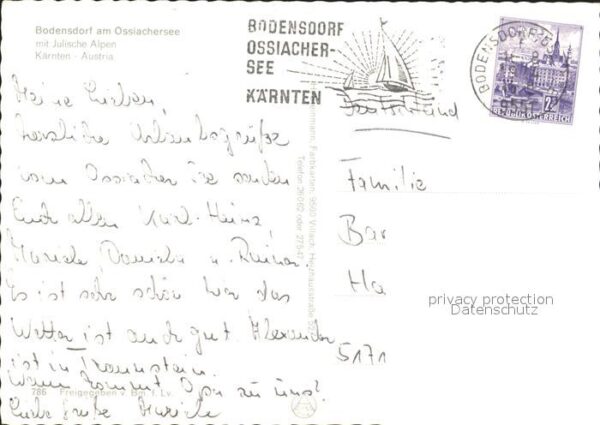 Bodensdorf am Ossiachersee
mit Julische Alpen
Kärnten - Austria
BODENSDORF
OSSIACHER-
SEE
KÄRNTEN
BODENSDORF
9551
2
REPUBLIK ÖSTERREICH
Meine Lieben,
herzliche Urlaubsgrüße
vom Ossiacher See senden
Euch allen Karl-Heinz,
Daniela u. Rainer.
Es ist sehr schön hier das
Wetter ist auch gut. Alexander
ist in Traunstein.
Wann kommt Opa zu uns?
Liebe Grüße
786 Freigegeben v. Bm. f. Lv.
Farbkarten, 9500 Villach,
Telefon
Deutschland
Familie
Bar
Ha
5171
privacy protection
Datenschutz